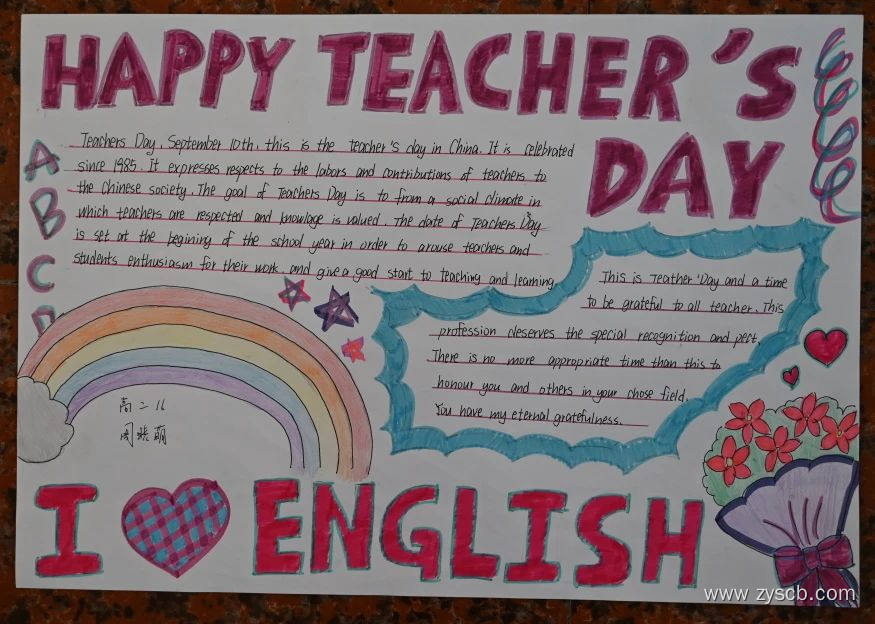 HAPPY TEACHER'S
DAY
Teachers Day, September 10th, this is the teacher's day in China. It is celebrated
since 1985. It expresses respects to the labors and contributions of teachers to
the Chinese society. The goal of Teachers Day is to from a social climate in
which teachers are respected and knowlage is valued. The date of Teachers Day
is set at the begining of the school year in order to arouse teachers and
students enthusiasm for their work. and give a good start to teaching and learning
A
B
C
D
This is Teather 'Day and a time
to be grateful to all teacher. This
profession deserves the special recognition and pect.
There is no more appropriate time than this to
honour you and others in your chose field.
You have my eternal gratefulness.
高二16
周 萌
I ENGLISH
www.zyscb.com